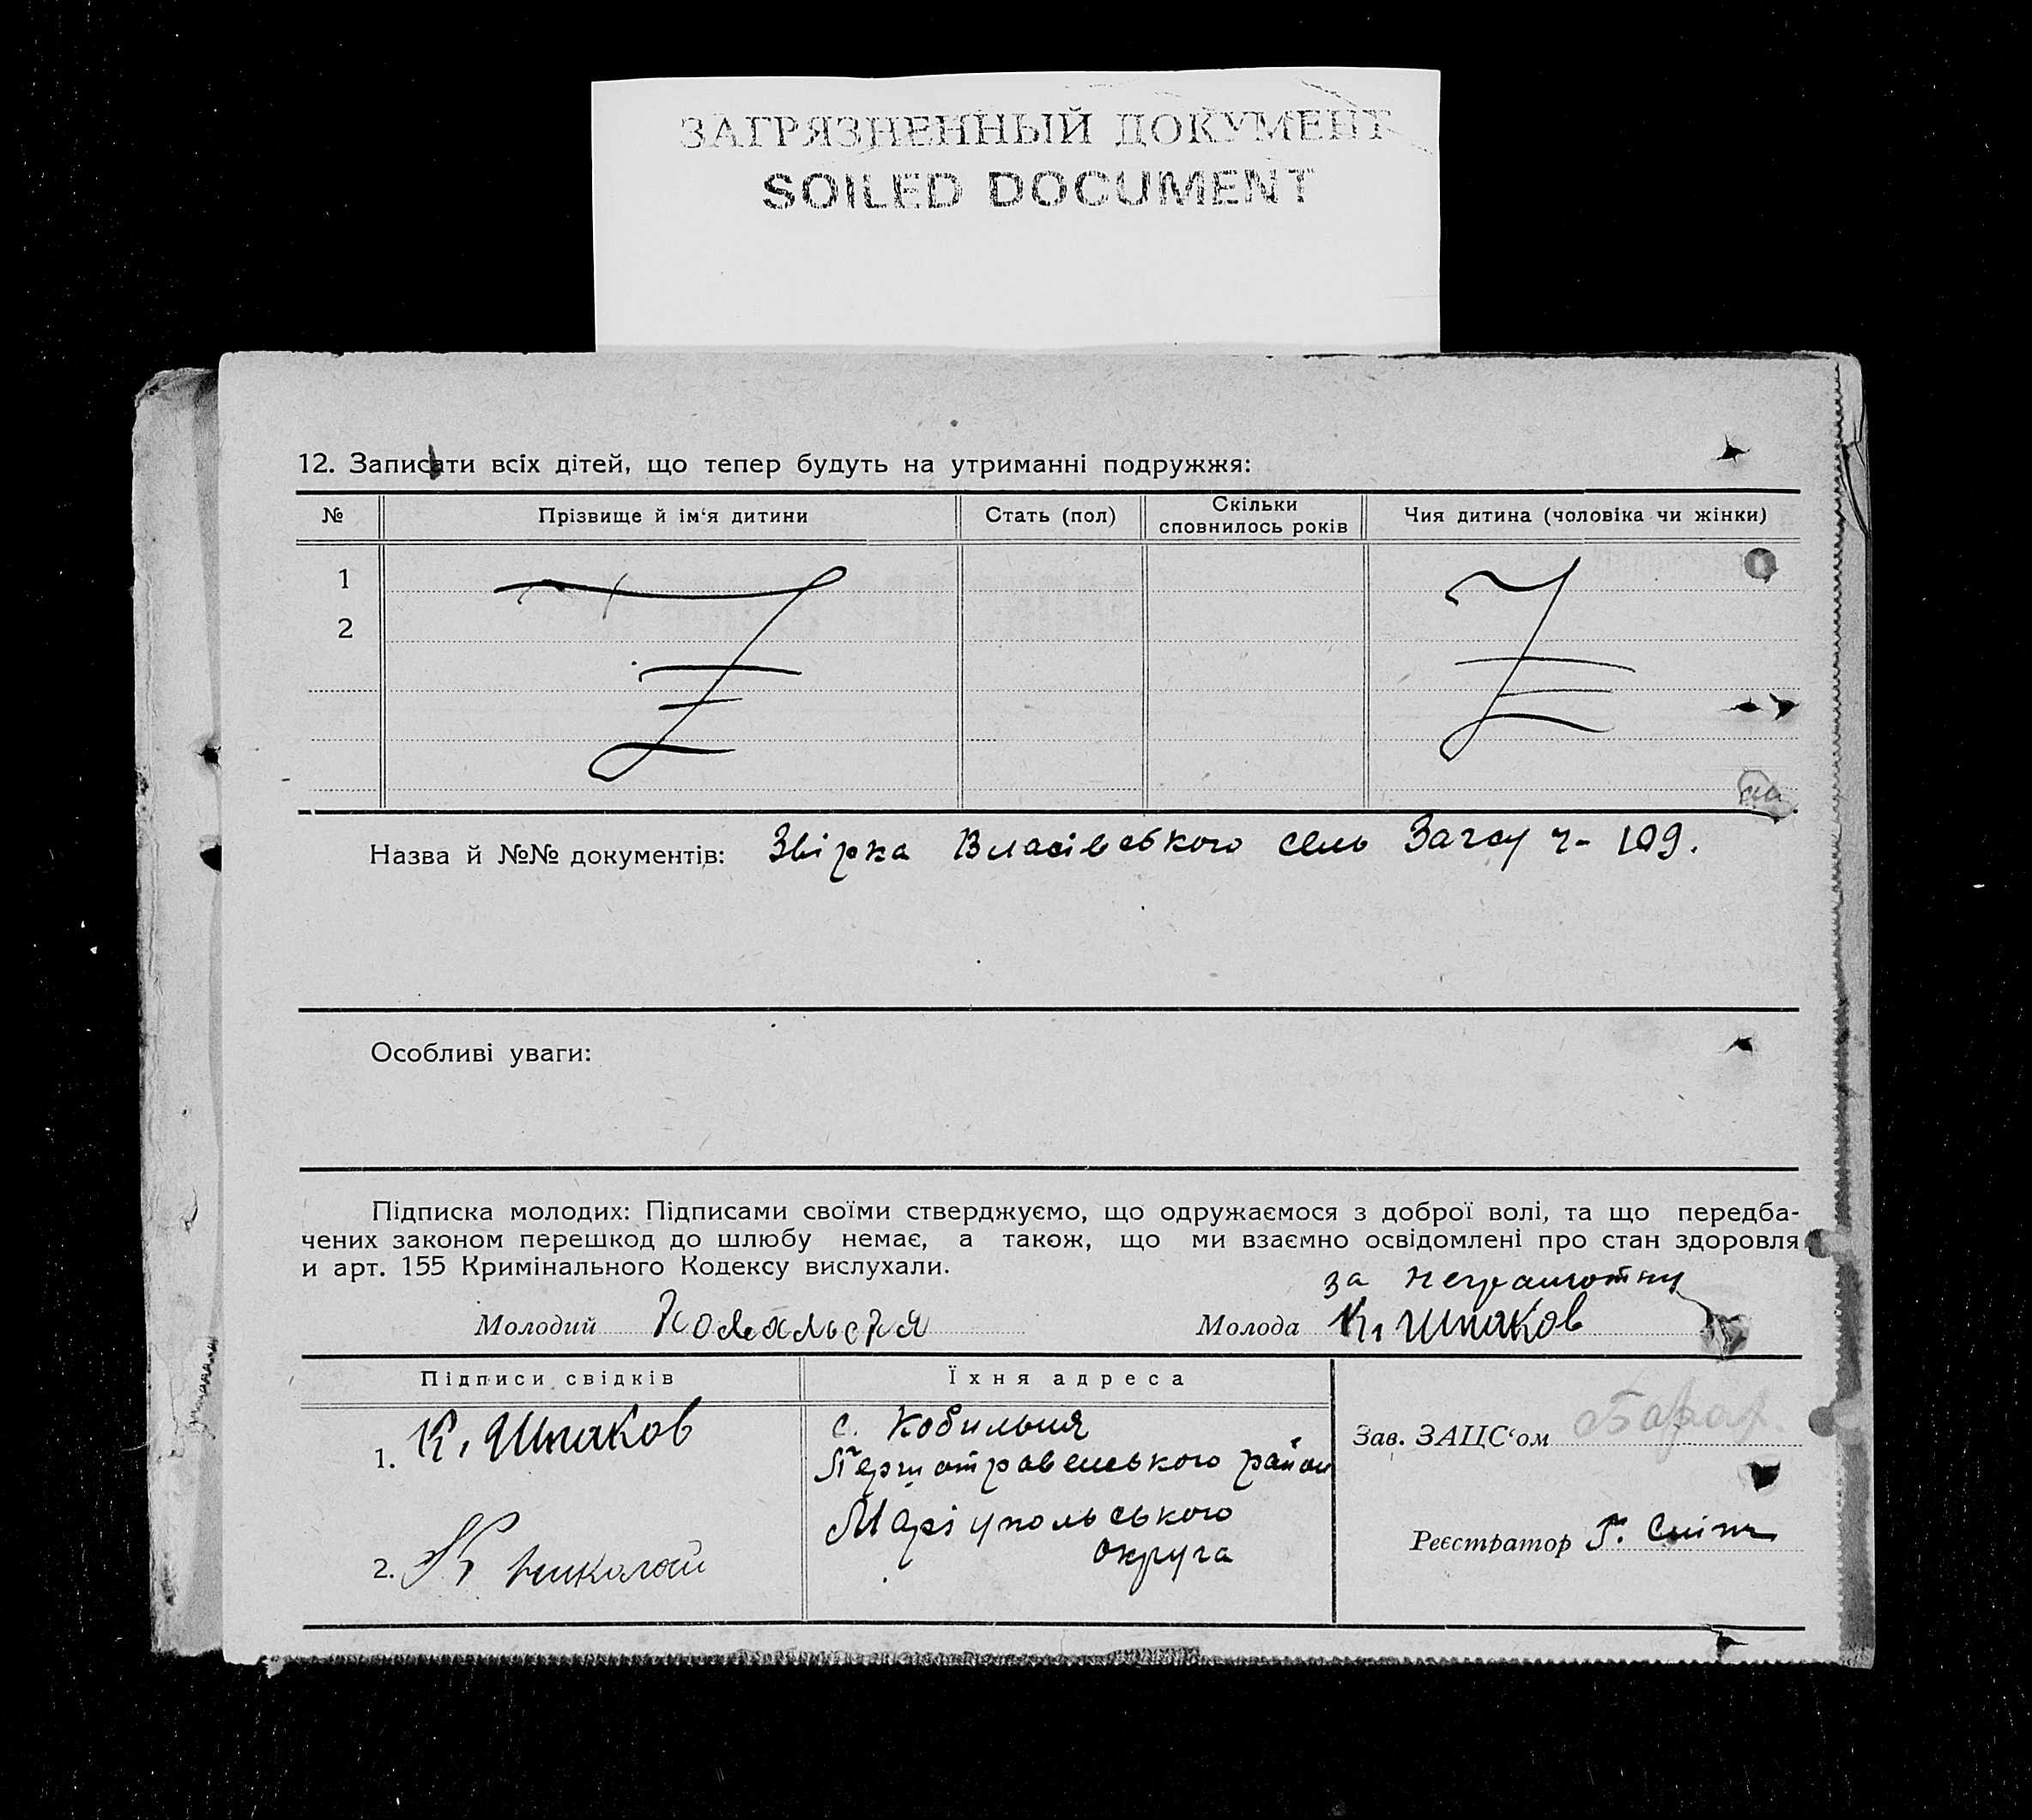 ЗАГРЯЗНЕННЫЙ ДОКУМЕНТ
SOILED DOCUMENT
12. Записати всіх дітей, що тепер будуть на утриманні подружжя:
№ Прізвище й ім‘я дитини Стать (пол) Скільки сповнилось років Чия дитина (чоловіка чи жінки)
1
2
Назва й №№ документів: Звірка Власівського сель Загсу ч- 109.
Особливі уваги:
Підписка молодих: Підписами своїми стверджуємо, що одружаємося з доброї волі, та що передба-
чених законом перешкод до шлюбу немає, а також, що ми взаємно освідомлені про стан здоровля
и арт. 155 Кримінального Кодексу вислухали.
за неграмотну
Молодий Молода К. Шпаков
Підписи свідків Їхня адреса
1. К. Шпаков с. Кобильня
Першотравенського район
Маріупольського
округа
2. К Николай
Зав. ЗАЦС‘ом
Реєстратор Г.